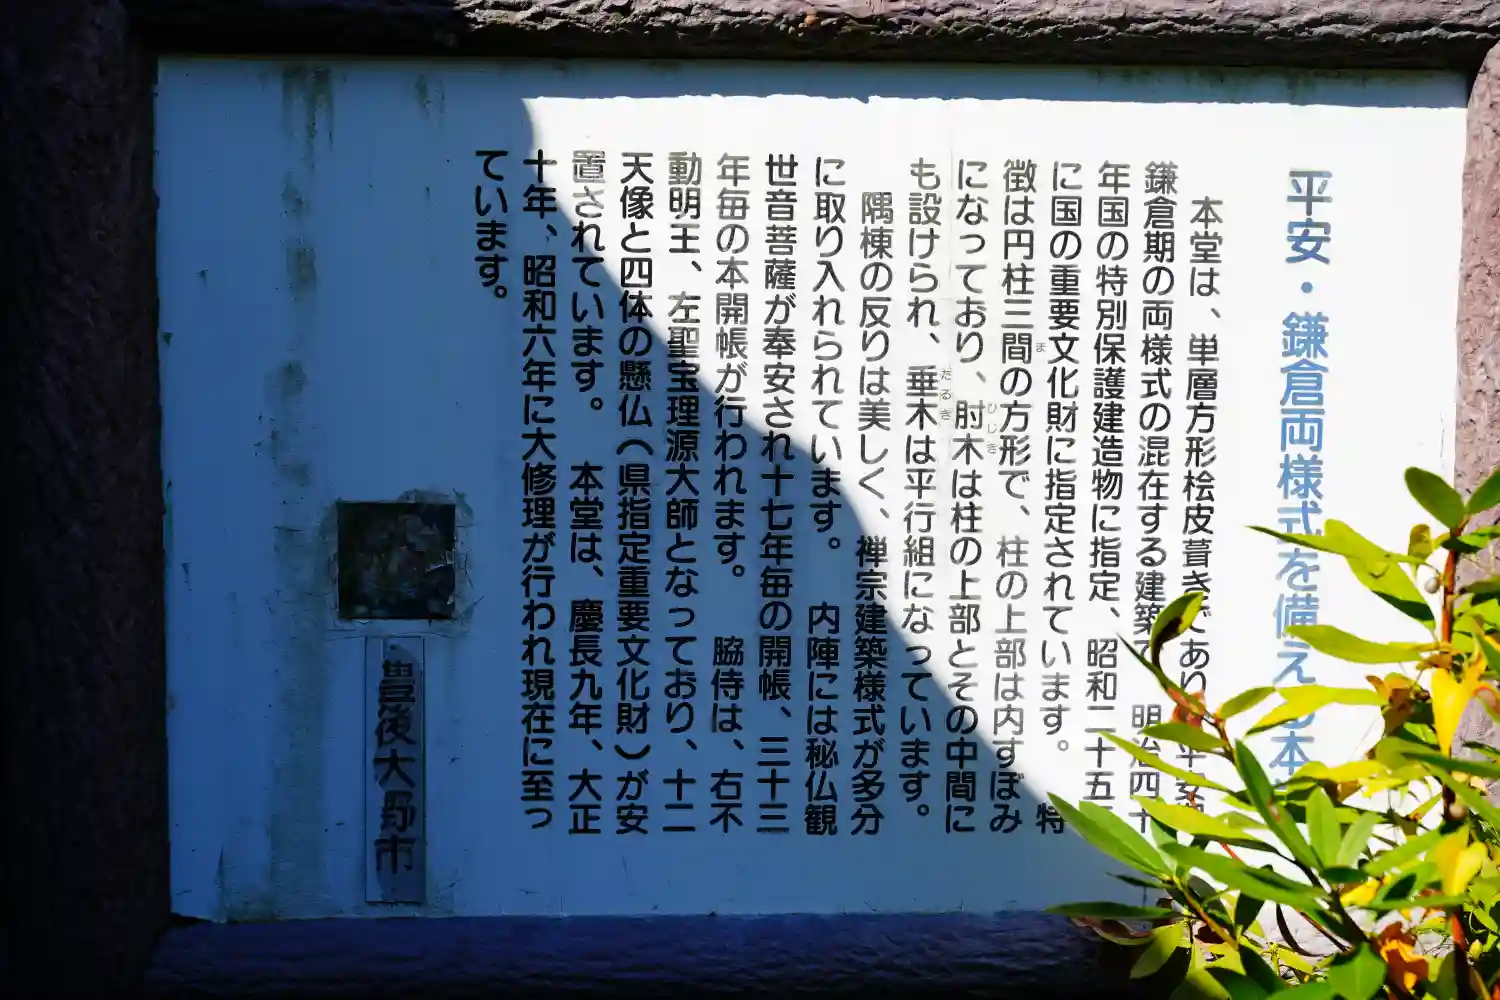 平安・鎌倉両様式を備え 本
本堂は、単層方形桧皮葺きであり 平安
鎌倉期の両様式の混在する建築で 明治四十
年国の特別保護建造物に指定、昭和二十五
に国の重要文化財に指定されています。 特
徴は円柱三間の方形で、柱の上部は内すぼみ
ま
になっており、肘木は柱の上部とその中間に
ひじき
も設けられ、垂木は平行組になっています。
だるき
隅棟の反りは美しく、禅宗建築様式が多分
に取り入れられています。 内陣には秘仏観
世音菩薩が奉安され十七年毎の開帳、三十三
年毎の本開帳が行われます。 脇侍は、右不
動明王、左聖宝理源大師となっており、十二
天像と四体の懸仏(県指定重要文化財)が安
置されています。 本堂は、慶長九年、大正
十年、昭和六年に大修理が行われ現在に至っ
ています。
豊後大野市